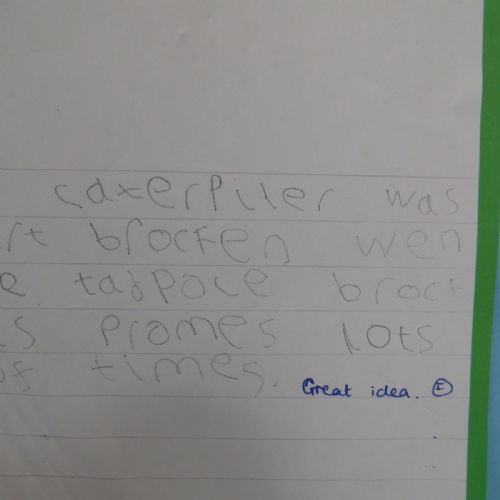 caterpiler was
rt brocken wen
e tadpole brock
s promes lots
of times.
Great idea. E